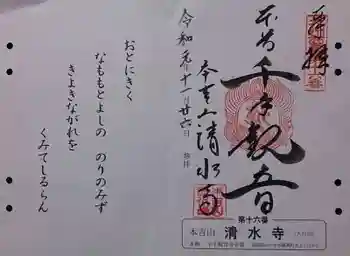 奉拝
本尊 千手観音
本吉山 清水寺
令和元年十一月廿六日
おとにきく
なももとよしの のりのみず
きよきながれを
くみてしるらん
第十六番
本吉山 清水寺